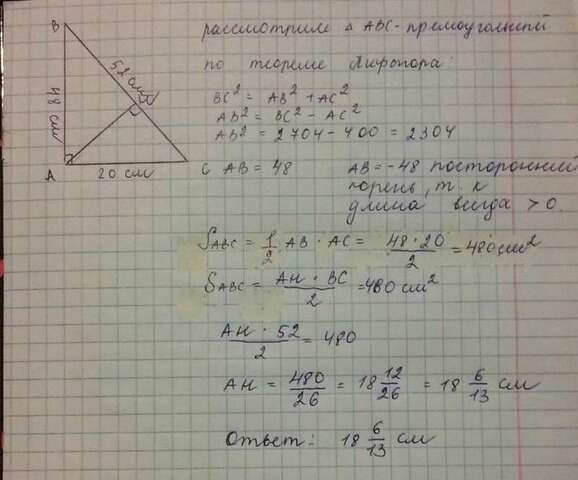 рассмотрим △ ABC - прямоугольный
по теореме Пифагора:
BC² = AB² + AC²
AB² = BC² - AC²
AB² = 2704 - 400 = 2304
AB = 48 AB = -48 посторонний
корень, т. к
длина всегда > 0.
B
52 см
H
48 см
A
20 см
C
S ABC = 1/2 AB · AC = 48 · 20 / 2 = 480 см²
S ABC = AH · BC / 2 = 480 см²
AH · 52 / 2 = 480
AH = 480/26 = 18 12/26 = 18 6/13 см
Ответ: 18 6/13 см